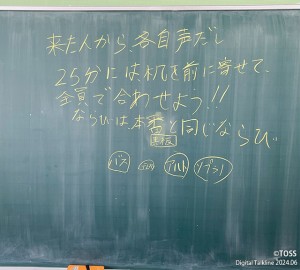 来た人から各自声だし
25分には机を前に寄せて、
全員で合わせよう!!
ならびは本番と同じならび
黒板
バス
アルト
ソプラノ
©TOSS
Digital Talkline 2024.06